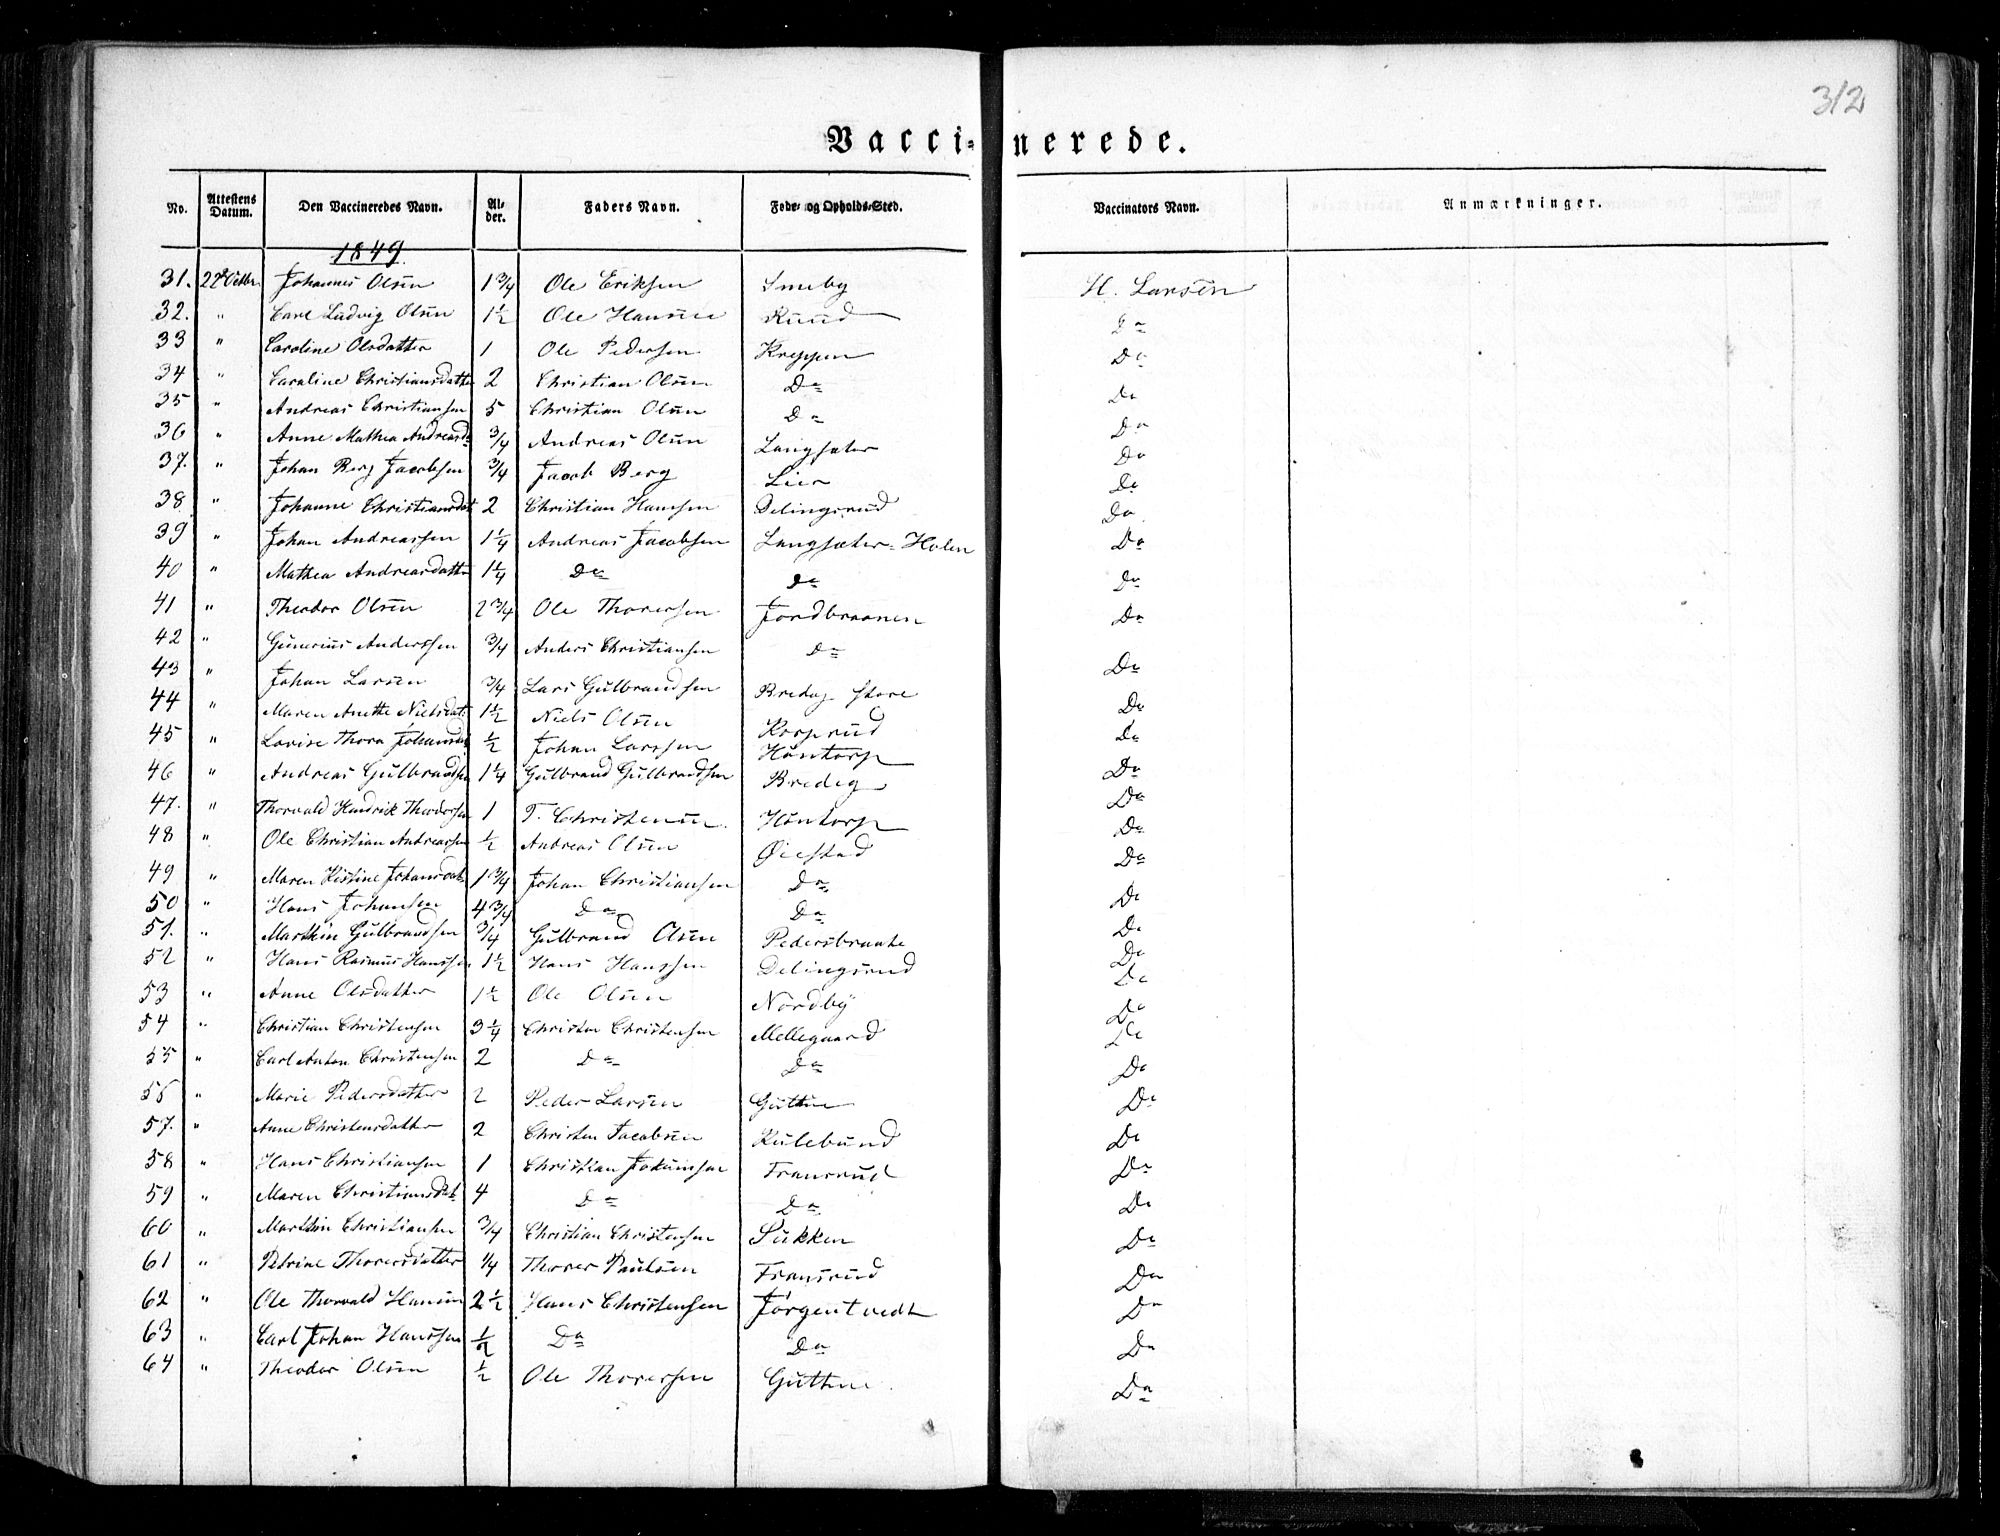 312
Vaccinerede.
No. Attestens Datum. Den Vaccineredes Navn. Alder. Faders Navn. Føde- og Opholds-Sted. Vaccinators Navn. Anmærkninger.
1849.
31. 22 Octbr. Johannes Olsen 1 3/4 Ole Eriksen Smeby H. Larsen
32. " Carl Ludvig Olsen 1 1/2 Ole Hansen Ruud Do
33 " Caroline Olsdatter 1 Ole Pedersen Kreppen Do
34 " Caroline Christiansdatter 2 Christian Olsen Do Do
35 " Andreas Christiansen 5 Christian Olsen Do Do
36 " Anne Mathea Andreasd. 3/4 Andreas Olsen Langsæter Do
37. " Johan Berg Jacobsen 3/4 Jacob Berg Lier Do
38 " Johanne Christiansdat 2 Christian Hansen Delingsrud Do
39 " Johan Andreassen 1 1/4 Andreas Jacobsen Langsæter-Holen Do
40 " Mathea Andreasdatter 1 1/4 Do Do Do
41 " Theodor Olsen 2 3/4 Ole Thoresen Jordbraanen Do
42 " Gunerius Anderssen 3/4 Anders Christiansen Do Do
43 " Johan Larsen 3/4 Lars Gulbrandsen Bredeg store Do
44 " Maren Anette Nielsdat. 1 1/2 Niels Olsen Korperud Do
45 " Lovise Thora Johansdat 1/2 Johan Larssen Høntorp Do
46 " Andreas Gulbrandsen 1 1/4 Gulbrand Gulbrandsen Bredeg Do
47. " Thorvald Hendrik Theodorsen 1 T. Christensen Høntorp Do
48 " Ole Christian Andreassen 1/2 Andreas Olsen Øiestad Do
49 " Maren Kistine Johansdat 1 3/4 Johan Christiansen Do Do
50 " Hans Johansen 4 3/4 Do Do Do
51. " Marthin Gulbrandsen 3/4 Gulbrand Olsen Pedersbraate Do
52 " Hans Rasmus Hanssen 1 1/2 Hans Hanssen Delingsrud Do
53 " Anne Olsdatter 1 1/2 Ole Olsen Nordby Do
54 " Christian Christensen 3 1/4 Christen Christensen Mellegaard Do
55 " Carl Anton Christensen 2 Do Do Do
56 " Marie Pedersdatter 2 Peder Larsen Guttue Do
57. " Anne Christensdatter 2 Christen Jacobsen Kulebund Do
58 " Hans Christiansen 1 Christian Jokumsen Fransrud Do
59 " Maren Christiansdat 4 Do Do Do
60 " Marthin Christiansen 3/4 Christian Christensen Sukken Do
61 " Petrine Thoresdatter 1/4 Thorer Paulsen Fransrud Do
62 " Ole Thorvald Hansen 2 1/2 Hans Christensen Jørgentvedt Do
63 " Carl Johan Hanssen 1/2 Do Do Do
64 " Theodor Olsen 1/2 Ole Thoresen Guttue Do
Do